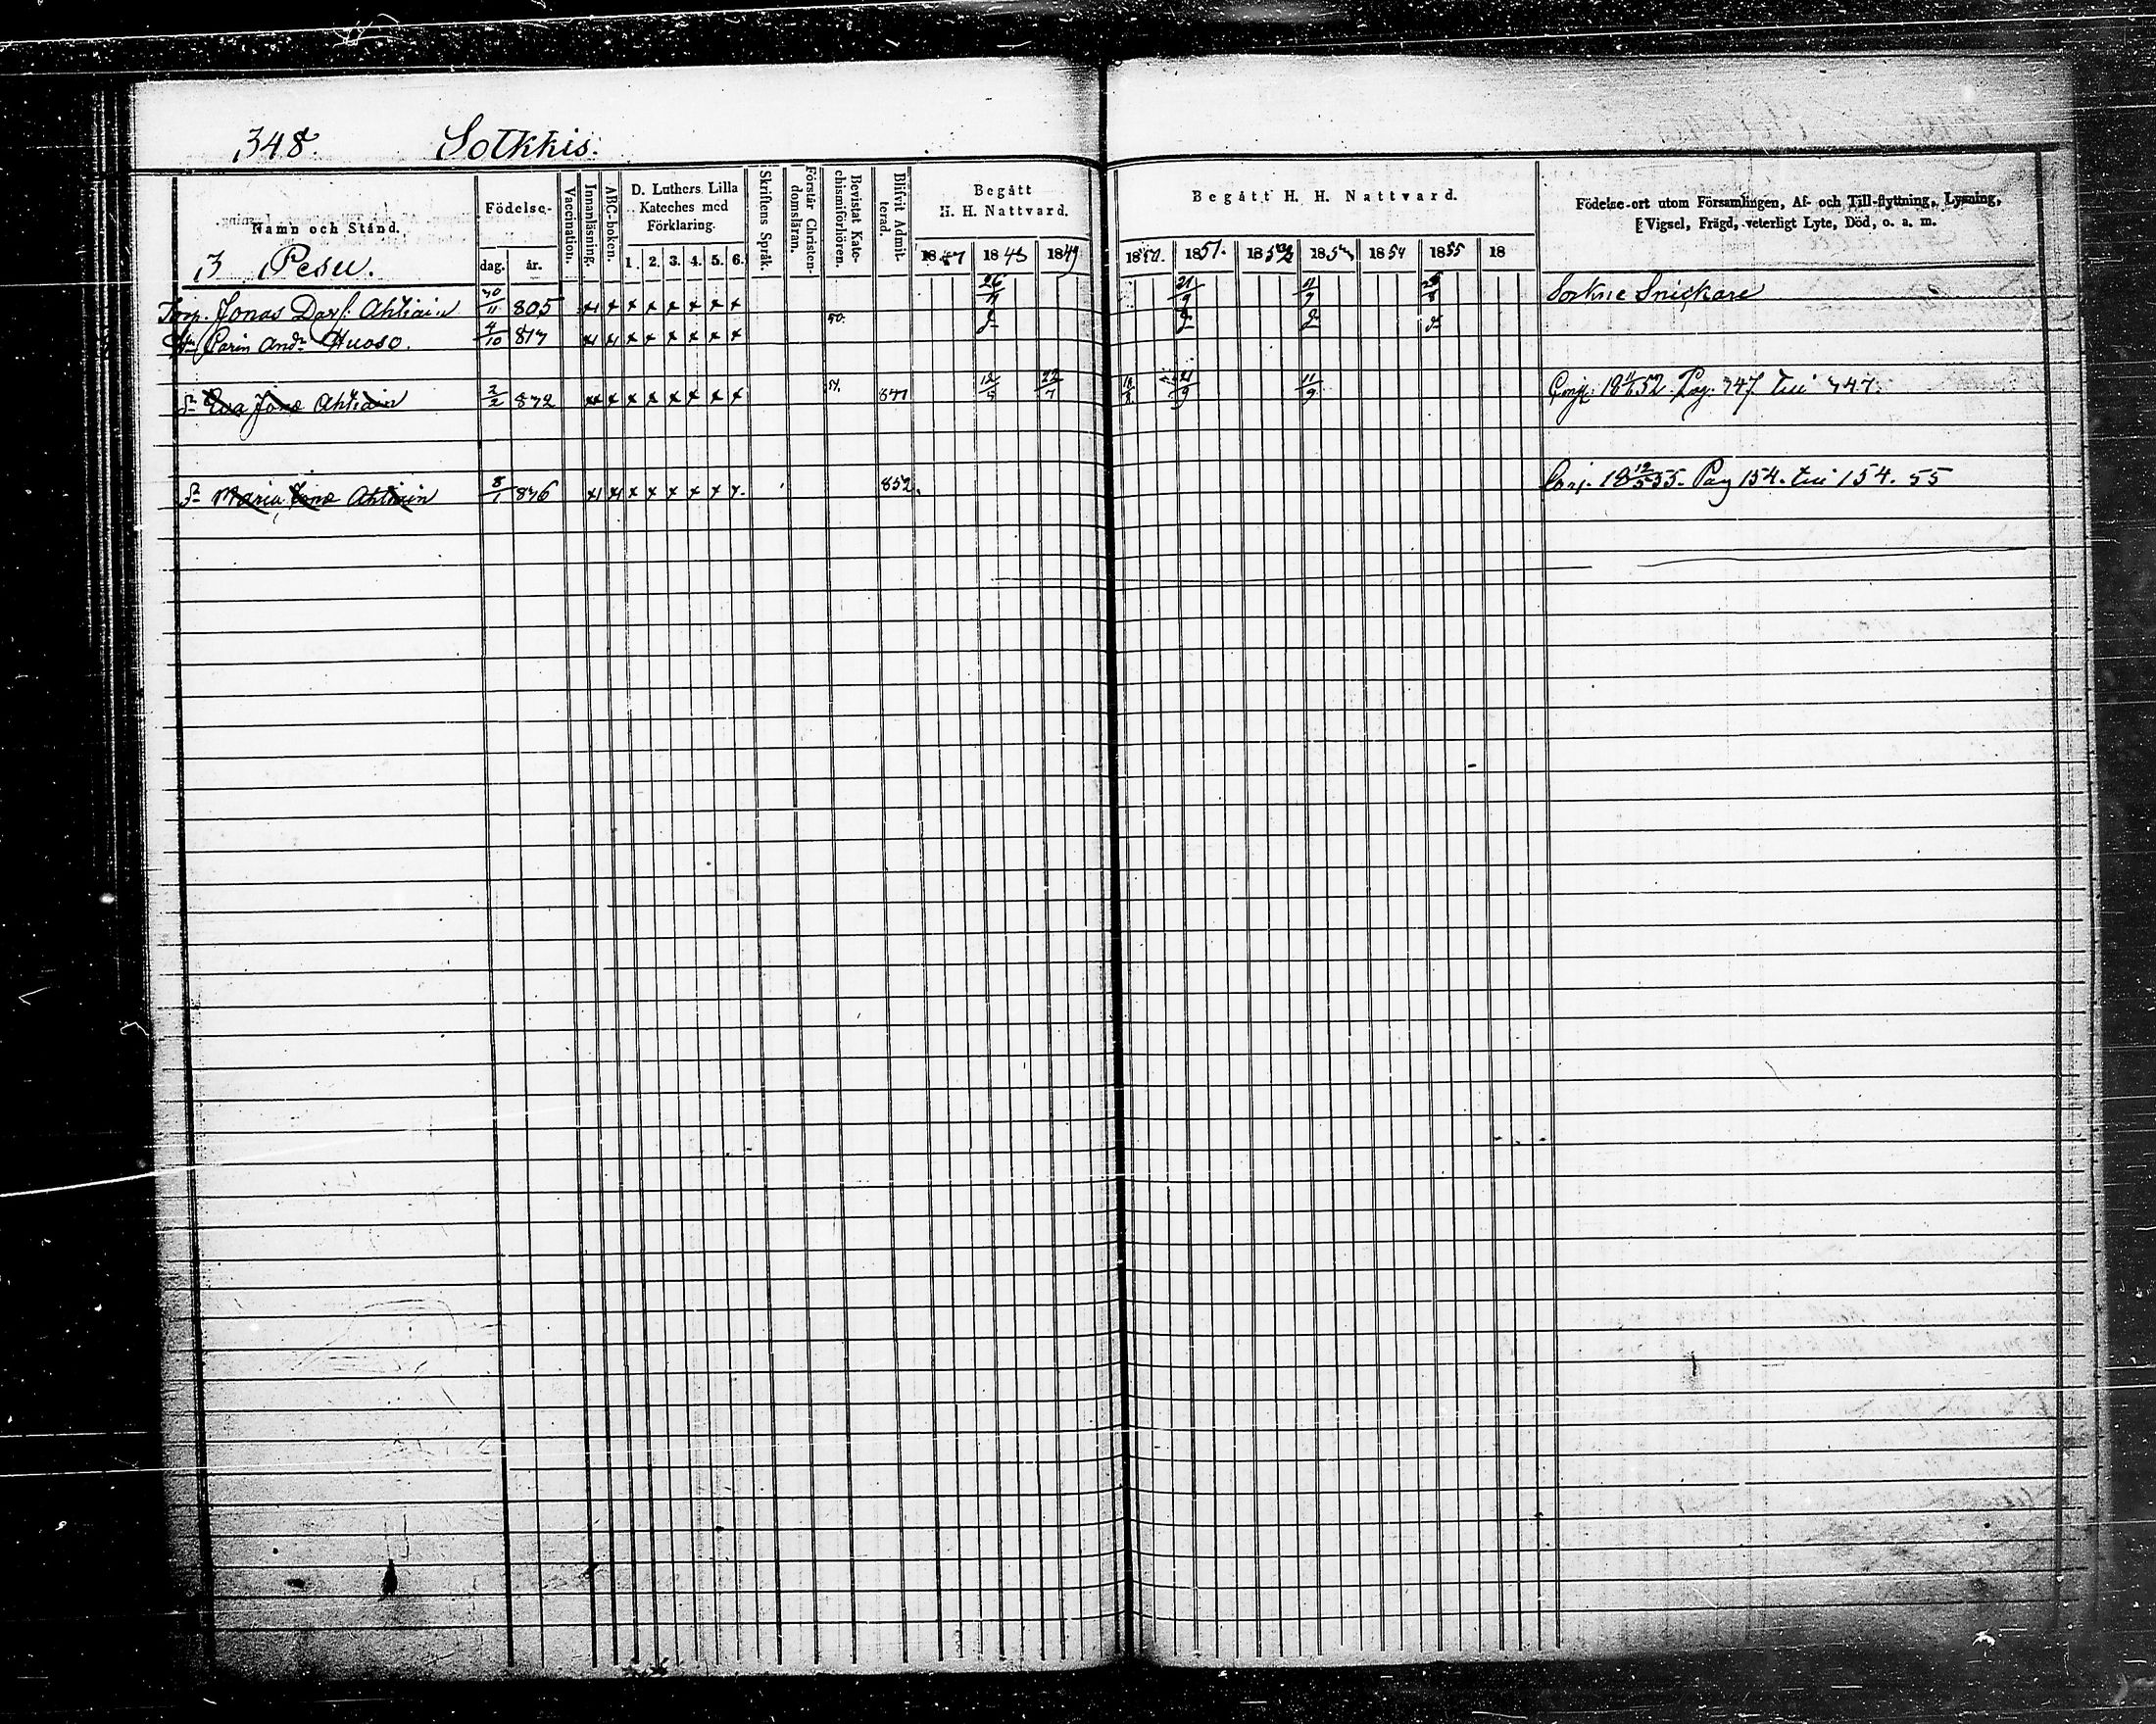 348. Sotkkis.
Namn och Stånd.
Födelse-
dag. år.
Vaccination.
Innanläsning.
ABC-boken.
D. Luthers Lilla Kateches med Förklaring.
1. 2. 3. 4. 5. 6.
Skriftens Språk.
Förstår Christendomsläran.
Bevistat Katechismiförhören.
Blifvit Admitterad.
Begått H. H. Nattvard.
1847 1848 1849
Begått H. H. Nattvard.
1850. 1851. 1852 1853 1854 1855 18
Födelse-ort utom Församlingen, Af- och Till-flyttning, Lysning,
Vigsel, Frägd, veterligt Lyte, Död, o. a. m.
3 Pesu.
Torp. Jonas Ahtiain 30/11 805 x x x x x x x x 26/9 21/9 11/9 Sockne Snickare
Hu Carin And: Huoso. 4/10 817 x x x x x x x x 50.
Dr Eva Jonæ Ahtiain 2/2 832 x x x x x x x x 51. 847 22/7 21/9 11/9 Conj: 18 52. Pag. 347. till 347.
Dr Maria Jonæ Ahtiain 8/1 836 x x x x x x x x 852. Conj. 18 12/5 55. Pag 154. till 154. 55